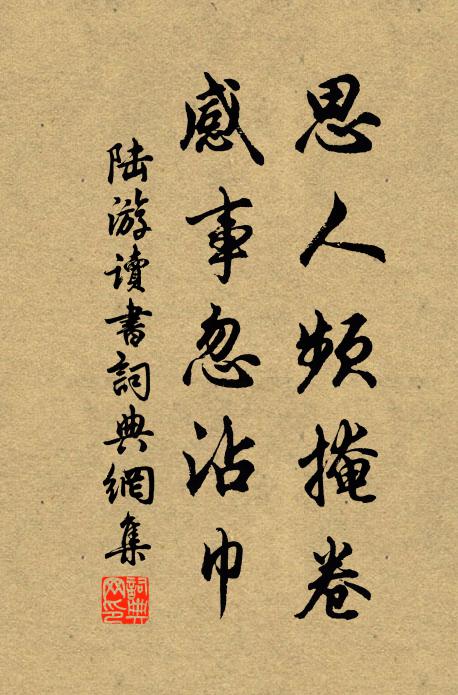 思人頻掩卷
感事忽沾巾
陆游讀書詞典網集
詞典网印